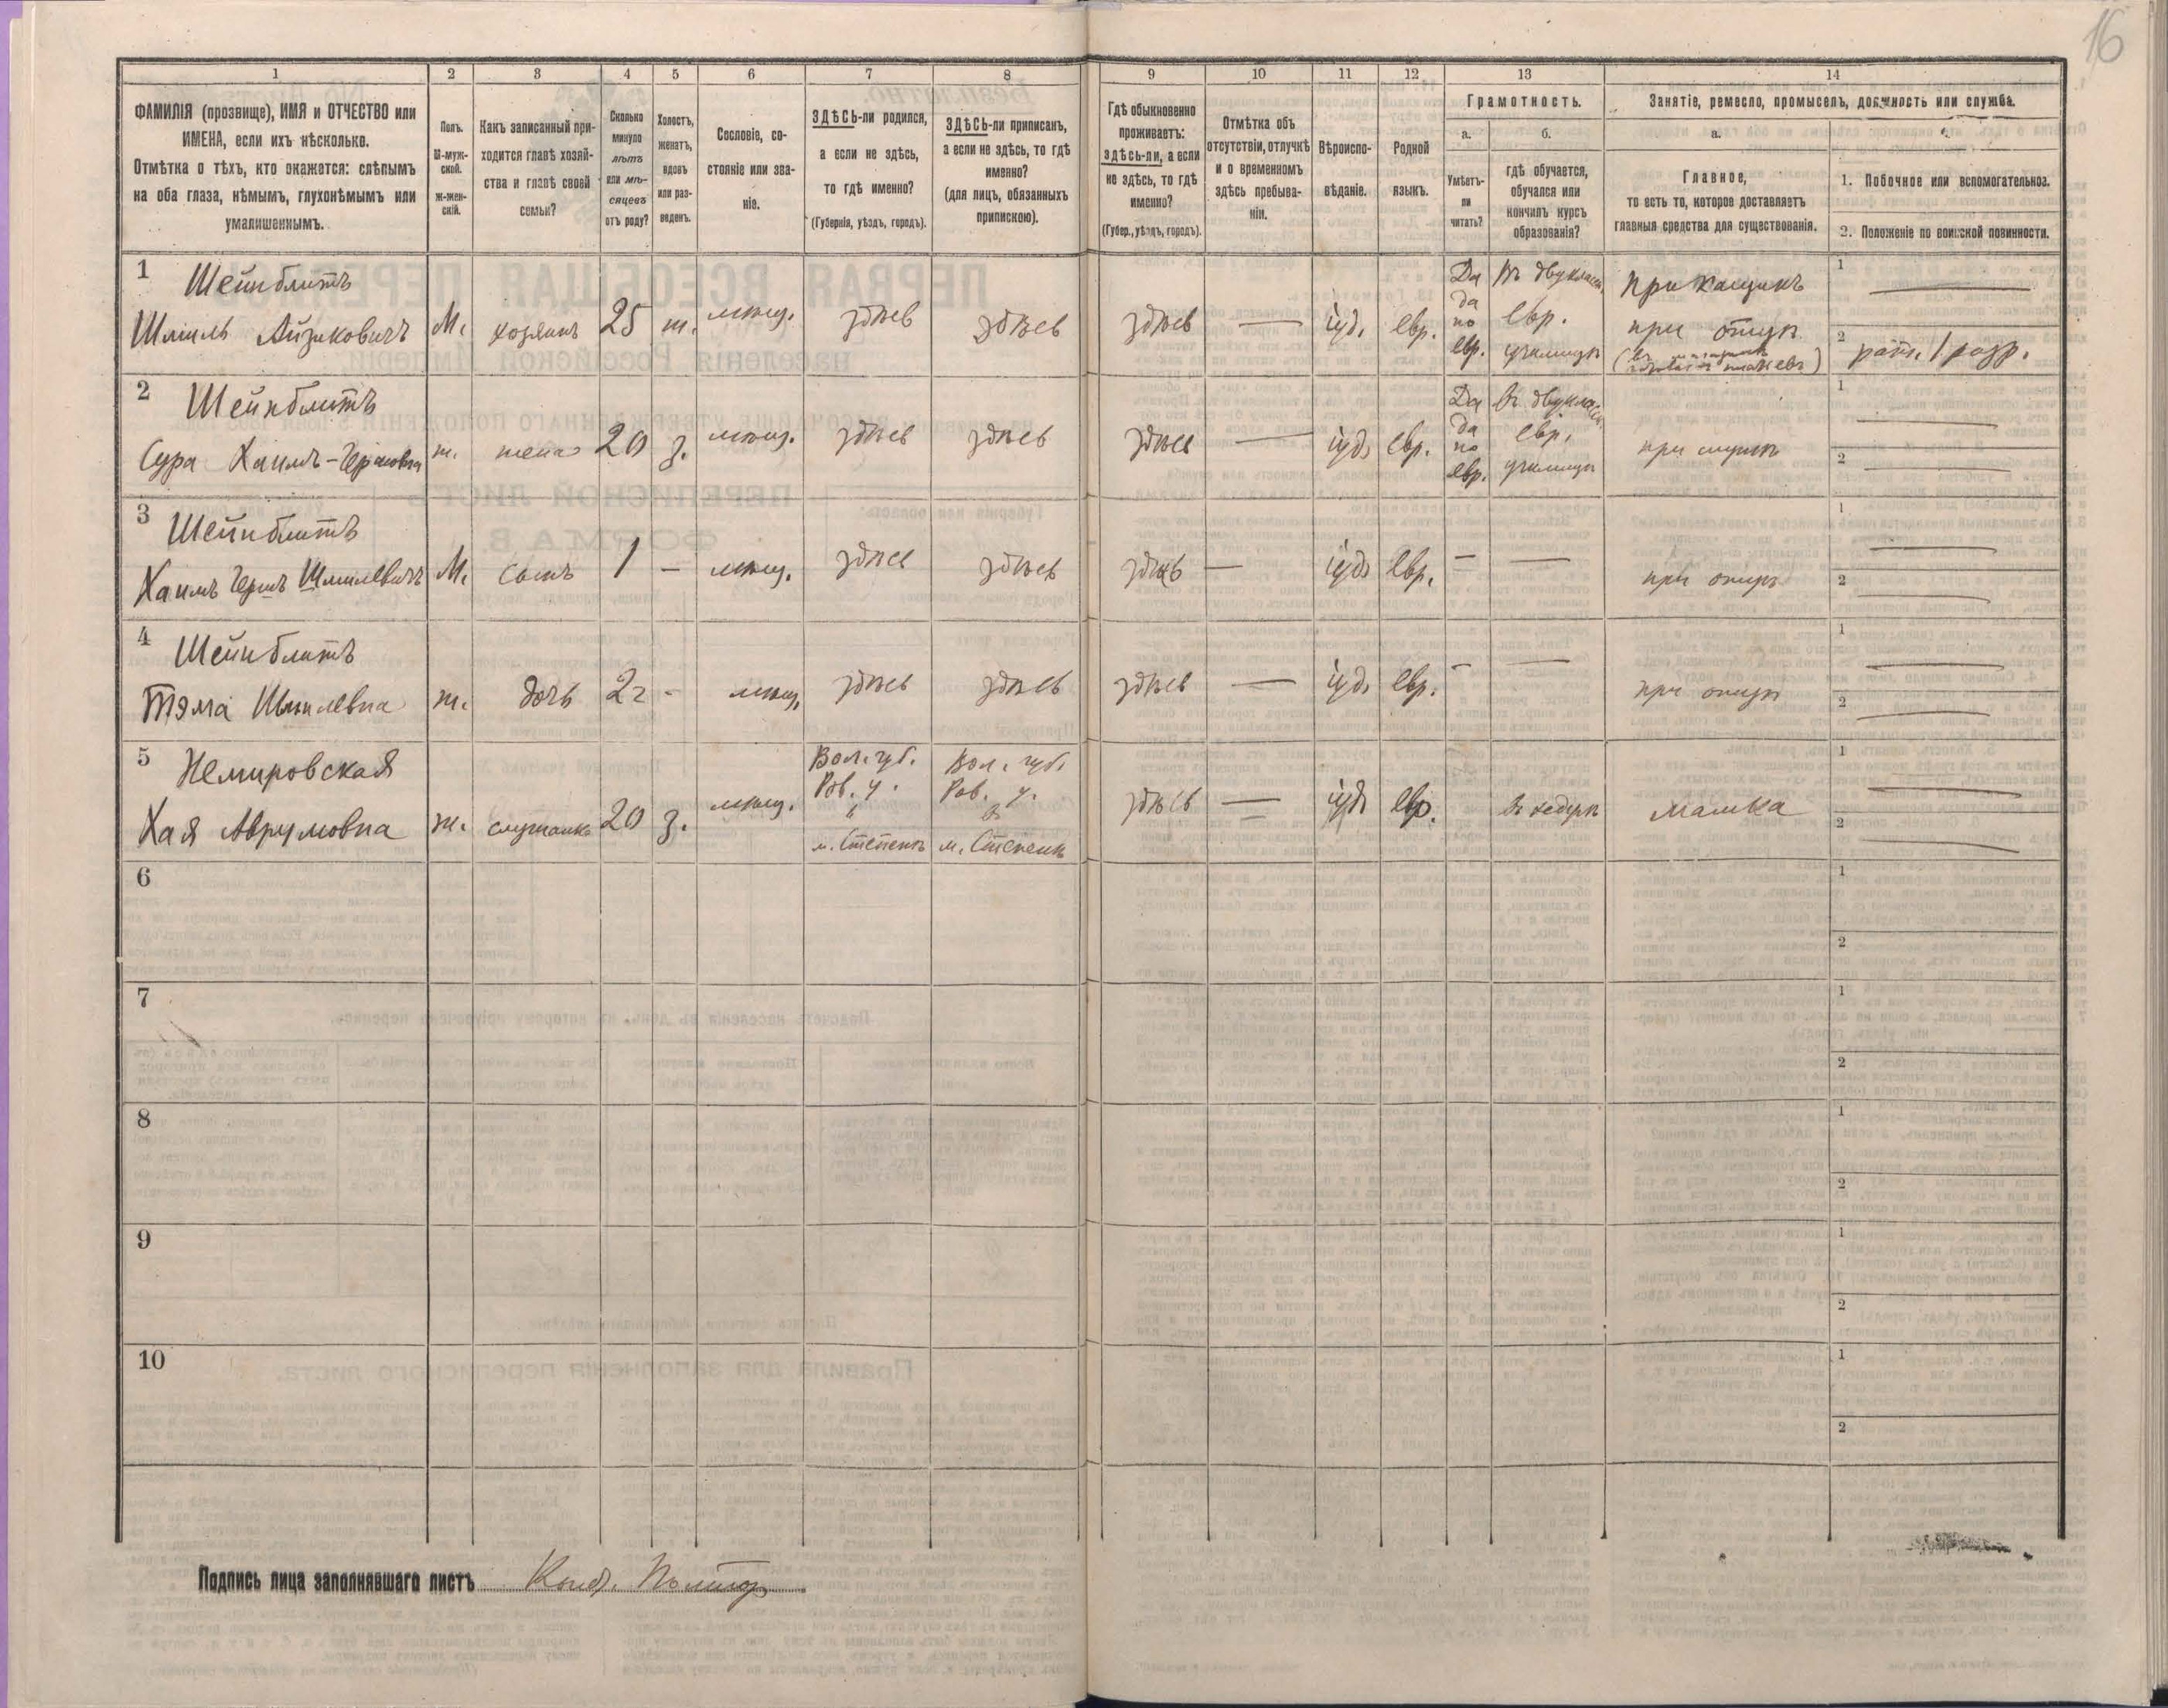 16
1 2 3 4 5 6 7 8 9 10 11 12 13 14
ФАМИЛІЯ (прозвище), ИМЯ и ОТЧЕСТВО или
ИМЕНА, если ихъ нѣсколько.
Отмѣтка о тѣхъ, кто окажется: слѣпымъ
на оба глаза, нѣмымъ, глухонѣмымъ или
умалишеннымъ.
Полъ.
М-муж-
ской.
Ж-жен-
скій.
Какъ записанный при-
ходится главѣ хозяй-
ства и главѣ своей
семьи?
Сколько
минуло
лѣтъ
или мѣ-
сяцевъ
отъ роду?
Холостъ,
женатъ,
вдовъ
или раз-
веденъ.
Сословіе, со-
стояніе или зва-
ніе.
ЗДѢСЬ-ли родился,
а если не здѣсь,
то гдѣ именно?
(Губернія, уѣздъ, городъ).
ЗДѢСЬ-ли приписанъ,
а если не здѣсь, то гдѣ
именно?
(для лицъ, обязанныхъ
припискою).
Гдѣ обыкновенно
проживаетъ:
здѣсь-ли, а если
не здѣсь, то гдѣ
именно?
(Губер., уѣздъ, городъ).
Отмѣтка объ
отсутствіи, отлучкѣ
и о временномъ
здѣсь пребыва-
ніи.
Вѣроиспо-
вѣданіе.
Родной
языкъ.
Грамотность.
а.
Умѣетъ-
ли
читать?
б.
гдѣ обучается,
обучался или
кончилъ курсъ
образованія?
Занятіе, ремесло, промыселъ, должность или служба.
а.
Главное,
то есть то, которое доставляетъ
главныя средства для существованія.
1. Побочное или вспомогательное.
2. Положеніе по воинской повинности.
1 Шейнблитъ
Шмиль Айзиковичъ М. хозяинъ 25 ж. мѣщ. здѣсь здѣсь здѣсь — іуд. евр.
Да да по евр.
въ двуклас. евр. училищѣ
Прикащикъ
при отцѣ
1 —
2 ратн. 1 разр.
2 Шейнблитъ
Сура Хаимъ-Гершовна ж. жена 20 з. мѣщ. здѣсь здѣсь здѣсь — іуд. евр.
Да да по евр.
въ двуклас. евр. училищѣ
при мужѣ
1 —
2 —
3 Шейнблитъ
Хаимъ Гершъ Шмилевичъ М. сынъ 1 — мѣщ. здѣсь здѣсь здѣсь — іуд. евр. — — при отцѣ
1 —
2 —
4 Шейнблитъ
Тэма Шмилевна ж. дочь 2 г - мѣщ. здѣсь здѣсь здѣсь — іуд. евр. — — при отцѣ
1 —
2 —
5 Немировская
Хая Аврумовна ж. служанка 20 з. мѣщ.
Вол. губ.
Ров. у.
м. Степень
Вол. губ.
Ров. у.
м. Степень
здѣсь — іуд. евр. въ хедерѣ мамка
1 —
2 —
6 1
2
7 1
2
8 1
2
9 1
2
10 1
2
Подпись лица заполнявшаго листъ